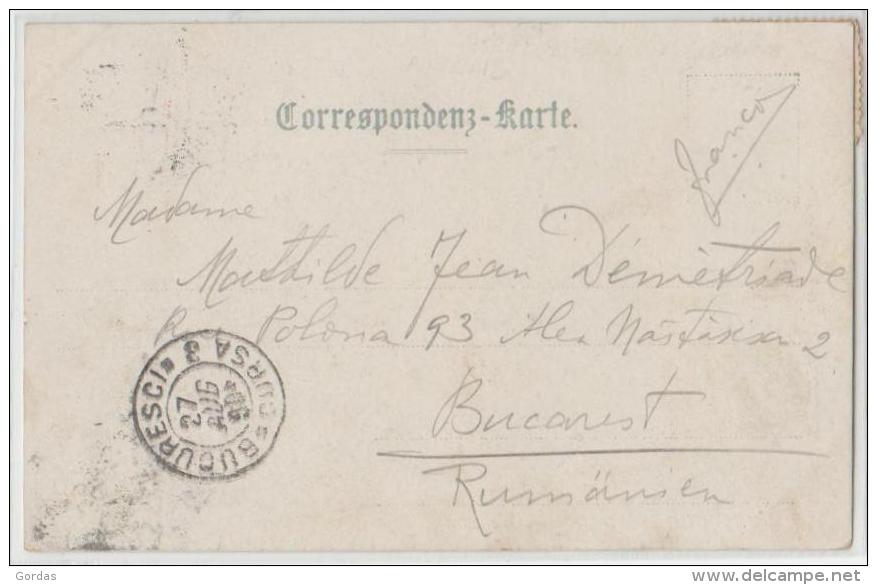 Correspondenz-Karte.
franco
Madame
Mathilde Jean Démètriade
R. Polona 93 Alea Năstăsiu 2
Bucarest
Rumänien
BUCURESCI * BURSA 3 *
27 AUG 06
Gordas
www.delcampe.net